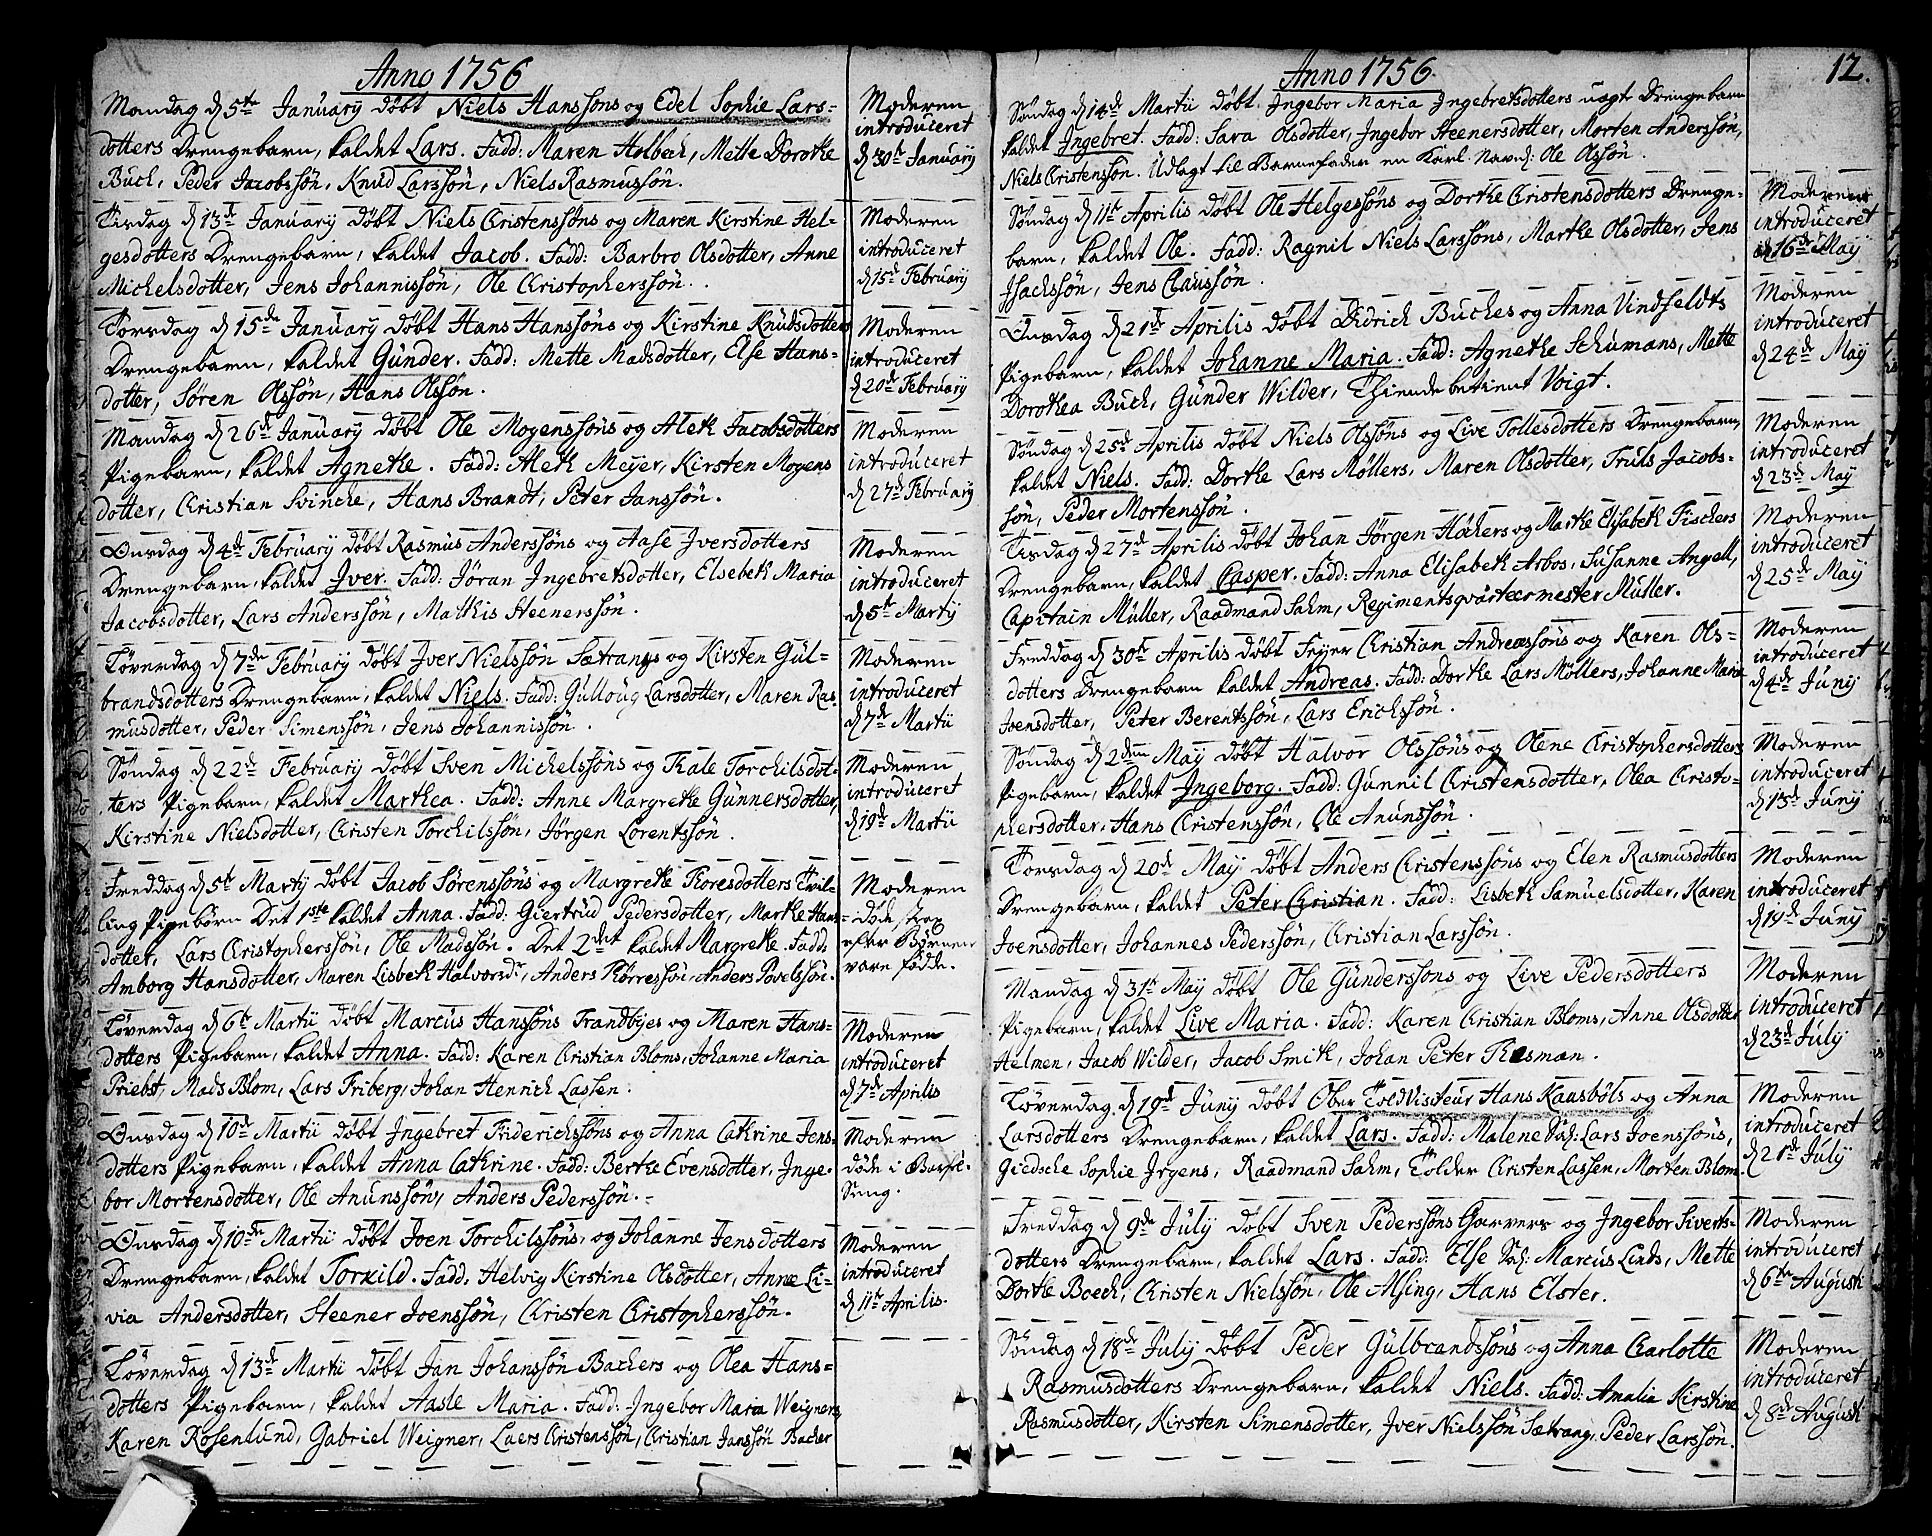 Anno 1756
Mandag d 5te Januarÿ døbt Niels Hanssøns og Edel Sophie Lars-
dotters Drengebarn, kaldet Lars. Fadd: Maren Holbech, Mette Dorothe
Buch, Peder Jacobssøn, Knud Larssøn, Niels Rasmussøn.
Moderen
introduceret
d 30te Januarÿ
Tirsdag d 13de Januarÿ døbt Niels Christenssøns og Maren Kirstine Hel-
gesdotters Drengebarn, kaldet Jacob. Fadd: Barbro Olsdotter, Anne
Michelsdotter, Jens Johannissøn, Ole Christopherssøn.
Moderen
introduceret
d 15de Februarÿ
Torsdag d 15de Januarÿ døbt Hans Hanssøns og Kirstine Knudsdotters
Drengebarn, kaldet Gunder. Fadd: Mette Madsdotter, Else Hans-
dotter, Søren Olssøn, Hans Olssøn.
Moderen
introduceret
d 20de Februarÿ
Mandag d 26de Januarÿ døbt Ole Mogenssøns og Aleth Jacobsdotters
Pigebarn, kaldet Agnethe. Fadd: Aleth Meÿer, Kirsten Mogens
dotter, Christian Svinche, Hans Brandt, Peter Janssøn.
Moderen
introduceret
d 27de Februarÿ
Onsdag d 4de Februarÿ døbt Rasmus Anderssøns og Aase Iversdotters
Drengebarn, kaldet Iver. Fadd: Jøran Ingebretsdotter, Elsebeth Maria
Jacobsdotter, Lars Anderssøn, Mathis Steenerssøn.
Moderen
introduceret
d 5te Martÿ
Løverdag d 7de Februarÿ døbt Iver Nielssøn Sætrangs og Kirsten Gul-
brandsdotters Drengebarn, kaldet Niels. Fadd: Gulloug Larsdotter, Maren Ras-
musdotter, Peder Simenssøn, Jens Johannissøn.
Moderen
introduceret
d 7de Martii
Søndag d 22de Februarÿ døbt Sven Michelssøns og Thale Torchilsdot-
ters Pigebarn, kaldet Marthea. Fadd: Anne Margrethe Gunnersdotter,
Kirstine Nielsdotter, Christen Torchilssøn, Jørgen Lorentssøn.
Moderen
introduceret
d 19de Martii
Freddag d 5te Martÿ døbt Jacob Sørenssøns og Margrethe Thoresdotters Tvil-
ling Pigebørn Det 1ste kaldet Anna. Fadd: Giertrud Pedersdotter, Marthe Hans-
dotter, Lars Christopherssøn, Ole Madssøn. Det 2det kaldet Margrethe. Fadd:
Amborg Hansdotter, Maren Lisbeth Halvorsdr, Anders Thorressøn, Anders Povelssøn.
Moderen
døde strax
efter Børnene
vare fødde.
Løverdag d 6te Martii døbt Marcus Hanssøns Trandbÿes og Maren Hans-
dotters Pigebarn, kaldet Anna. Fadd: Karen Christian Bloms, Johanne Maria
Priebst, Mads Blom, Lars Friberg, Johan Henrich Lassen.
Moderen
introduceret
d 7de Aprilis
Onsdag d 10de Martii døbt Ingebret Friderichssøns og Anna Cathrine Jens-
dotters Pigebarn, kaldet Anna Cathrine. Fadd: Berthe Evensdotter, Inge-
bor Mortensdotter, Ole Anunssøn, Anders Pederssøn.
Moderen
døde i Barsel-
Seng.
Onsdag d 10de Martii døbt Joen Torchilssøns, og Johanne Jensdotters
Drengebarn, kaldet Torkild. Fadd: Helvig Kirstine Olsdotter, Anne Li-
via Andersdotter, Steener Joenssøn, Christen Christopherssøn.
Moderen
introduceret
d 11te Aprilis.
Løverdag d 13de Martii døbt Jan Johanssøn Bachers og Olea Hans-
dotters Pigebarn, kaldet Aasle Maria. Fadd: Ingebor Maria Weigners,
Karen Rosenlund, Gabriel Weigner, Laers Christenssøn, Christian Janssøn Bacher
Anno 1756
12.
Søndag d 14de Martii døbt Ingebor Maria Ingebretsdotters uægte Drengebarn
kaldet Ingebret. Fadd: Sara Olsdotter, Ingebor Steenersdotter, Morten Anderssøn,
Niels Christenssøn. Udlagt til Barnefader en Karl Navnl: Ole Olssøn.
Søndag d 11te Aprilis døbt Ole Helgessøns og Dorthe Christensdotters Drenge-
barn, kaldet Ole. Fadd: Ragnil Niels Larssøns, Marthe Olsdotter, Jens
Isachssøn, Jens Claussøn.
Moderen
introduceret
d 16de Maÿ
Onsdag d 21de Aprilis døbt Didrich Buches og Anna Vindfeldts
Pigebarn, kaldet Johanne Maria. Fadd: Agnethe Schumans, Mette
Dorothea Buch, Gunder Wilder, Thiende betient Voigt.
Moderen
introduceret
d 24de Maÿ
Søndag d 25de Aprilis døbt Niels Olssøns og Live Tollesdotters Drengebarn,
kaldet Niels. Fadd: Dorthe Lars Møllers, Maren Olsdotter, Truls Jacobs-
søn, Peder Mortenssøn.
Moderen
introduceret
d 23de Maÿ
Tirsdag d 27de Aprilis døbt Johan Jørgen Høkers og Marthe Elisabeth Fischers
Drengebarn, kaldet Casper. Fadd: Anna Elisabeth Arbos, Susanne Angell,
Capitain Müller, Raadmand Sahm, Regimentsqvarteermester Müller.
Moderen
introduceret
d 25de Maÿ
Freddag d 30te Aprilis døbt Feÿer Christian Andreæssøns og Karen Ols-
dotters Drengebarn kaldet Andreas. Fadd: Dorthe Lars Møllers, Johanne Maria
Joensdotter, Peter Berentssøn, Lars Erichssøn.
Moderen
introduceret
d 4de Junÿ
Søndag d 2den Maÿ døbt Halvor Olssøns og Olene Christophersdotters
Pigebarn, kaldet Ingeborg. Fadd: Gunnil Christensdotter, Olea Christo-
phersdotter, Hans Christenssøn, Ole Anunssøn.
Moderen
introduceret
d 13de Junÿ
Torsdag d 20de Maÿ døbt Anders Christenssøns og Elen Rasmusdotters
Drengebarn, kaldet Peter Christian. Fadd: Lisbeth Samuelsdotter, Karen
Joensdotter, Johannes Pederssøn, Christian Larssøn.
Moderen
introduceret
d 19de Junÿ
Mandag d 31te Maÿ døbt Ole Gunderssøns og Live Pedersdotters
Pigebarn, kaldet Live Maria. Fadd: Karen Christian Bloms, Anne Olsdotter
Helmen, Jacob Wilder, Jacob Smith, Johan Peter Thesman.
Moderen
introduceret
d 23de Julÿ
Løverdag d 19de Junÿ døbt Ober ToldVisiteur Hans Kaasbøls og Anna
Larsdotters Drengebarn, kaldet Lars. Fadd: Malene Sal: Lars Joenssøns,
Giedsche Sophie Irgens, Raadmand Sahm, Tolder Christen Lassen, Morten Blom.
Moderen
introduceret
d 21de Julÿ
Freddag d 9de Julÿ døbt Sven Pederssøns Garvers og Ingebor Siverts-
dotters Drengebarn, kaldet Lars. Fadd: Else Sal: Marcus Linds, Mette
Dorthe Boech, Christen Nielssøn, Ole Alsing, Hans Elster.
Moderen
introduceret
d 6te Augusti
Søndag d 18de Julÿ døbt Peder Gulbrandssøns og Anna Charlotte
Rasmusdotters Drengebarn, kaldet Niels. Fadd: Amalia Kirstine
Rasmusdotter, Kirsten Simensdotter, Iver Nielssøn Sætrang, Peder Larssøn.
Moderen
introduceret
d 8de Augusti